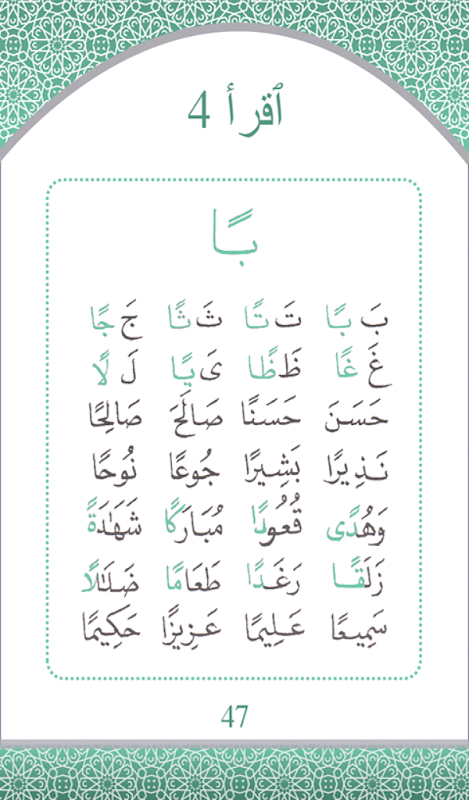 ٱقرأ 4
بًا
بَ بًا تَ تًا ثَ ثًا جَ جًا
غَ غًا ظَ ظًا ىَ يًا لَ لًا
حَسَنَ حَسَنًا صَالَحَ صَالِحًا
نَذِيرًا بَشِيرًا جُوعًا نُوحًا
وَهُدًى قُعُودًا مُبَارَكًا شَهَٰدَةً
زَلَقًا رَغَدًا طَعَامًا ضَلَٰلًا
سَمِيعًا عَلِيمًا عَزِيزًا حَكِيمًا
47